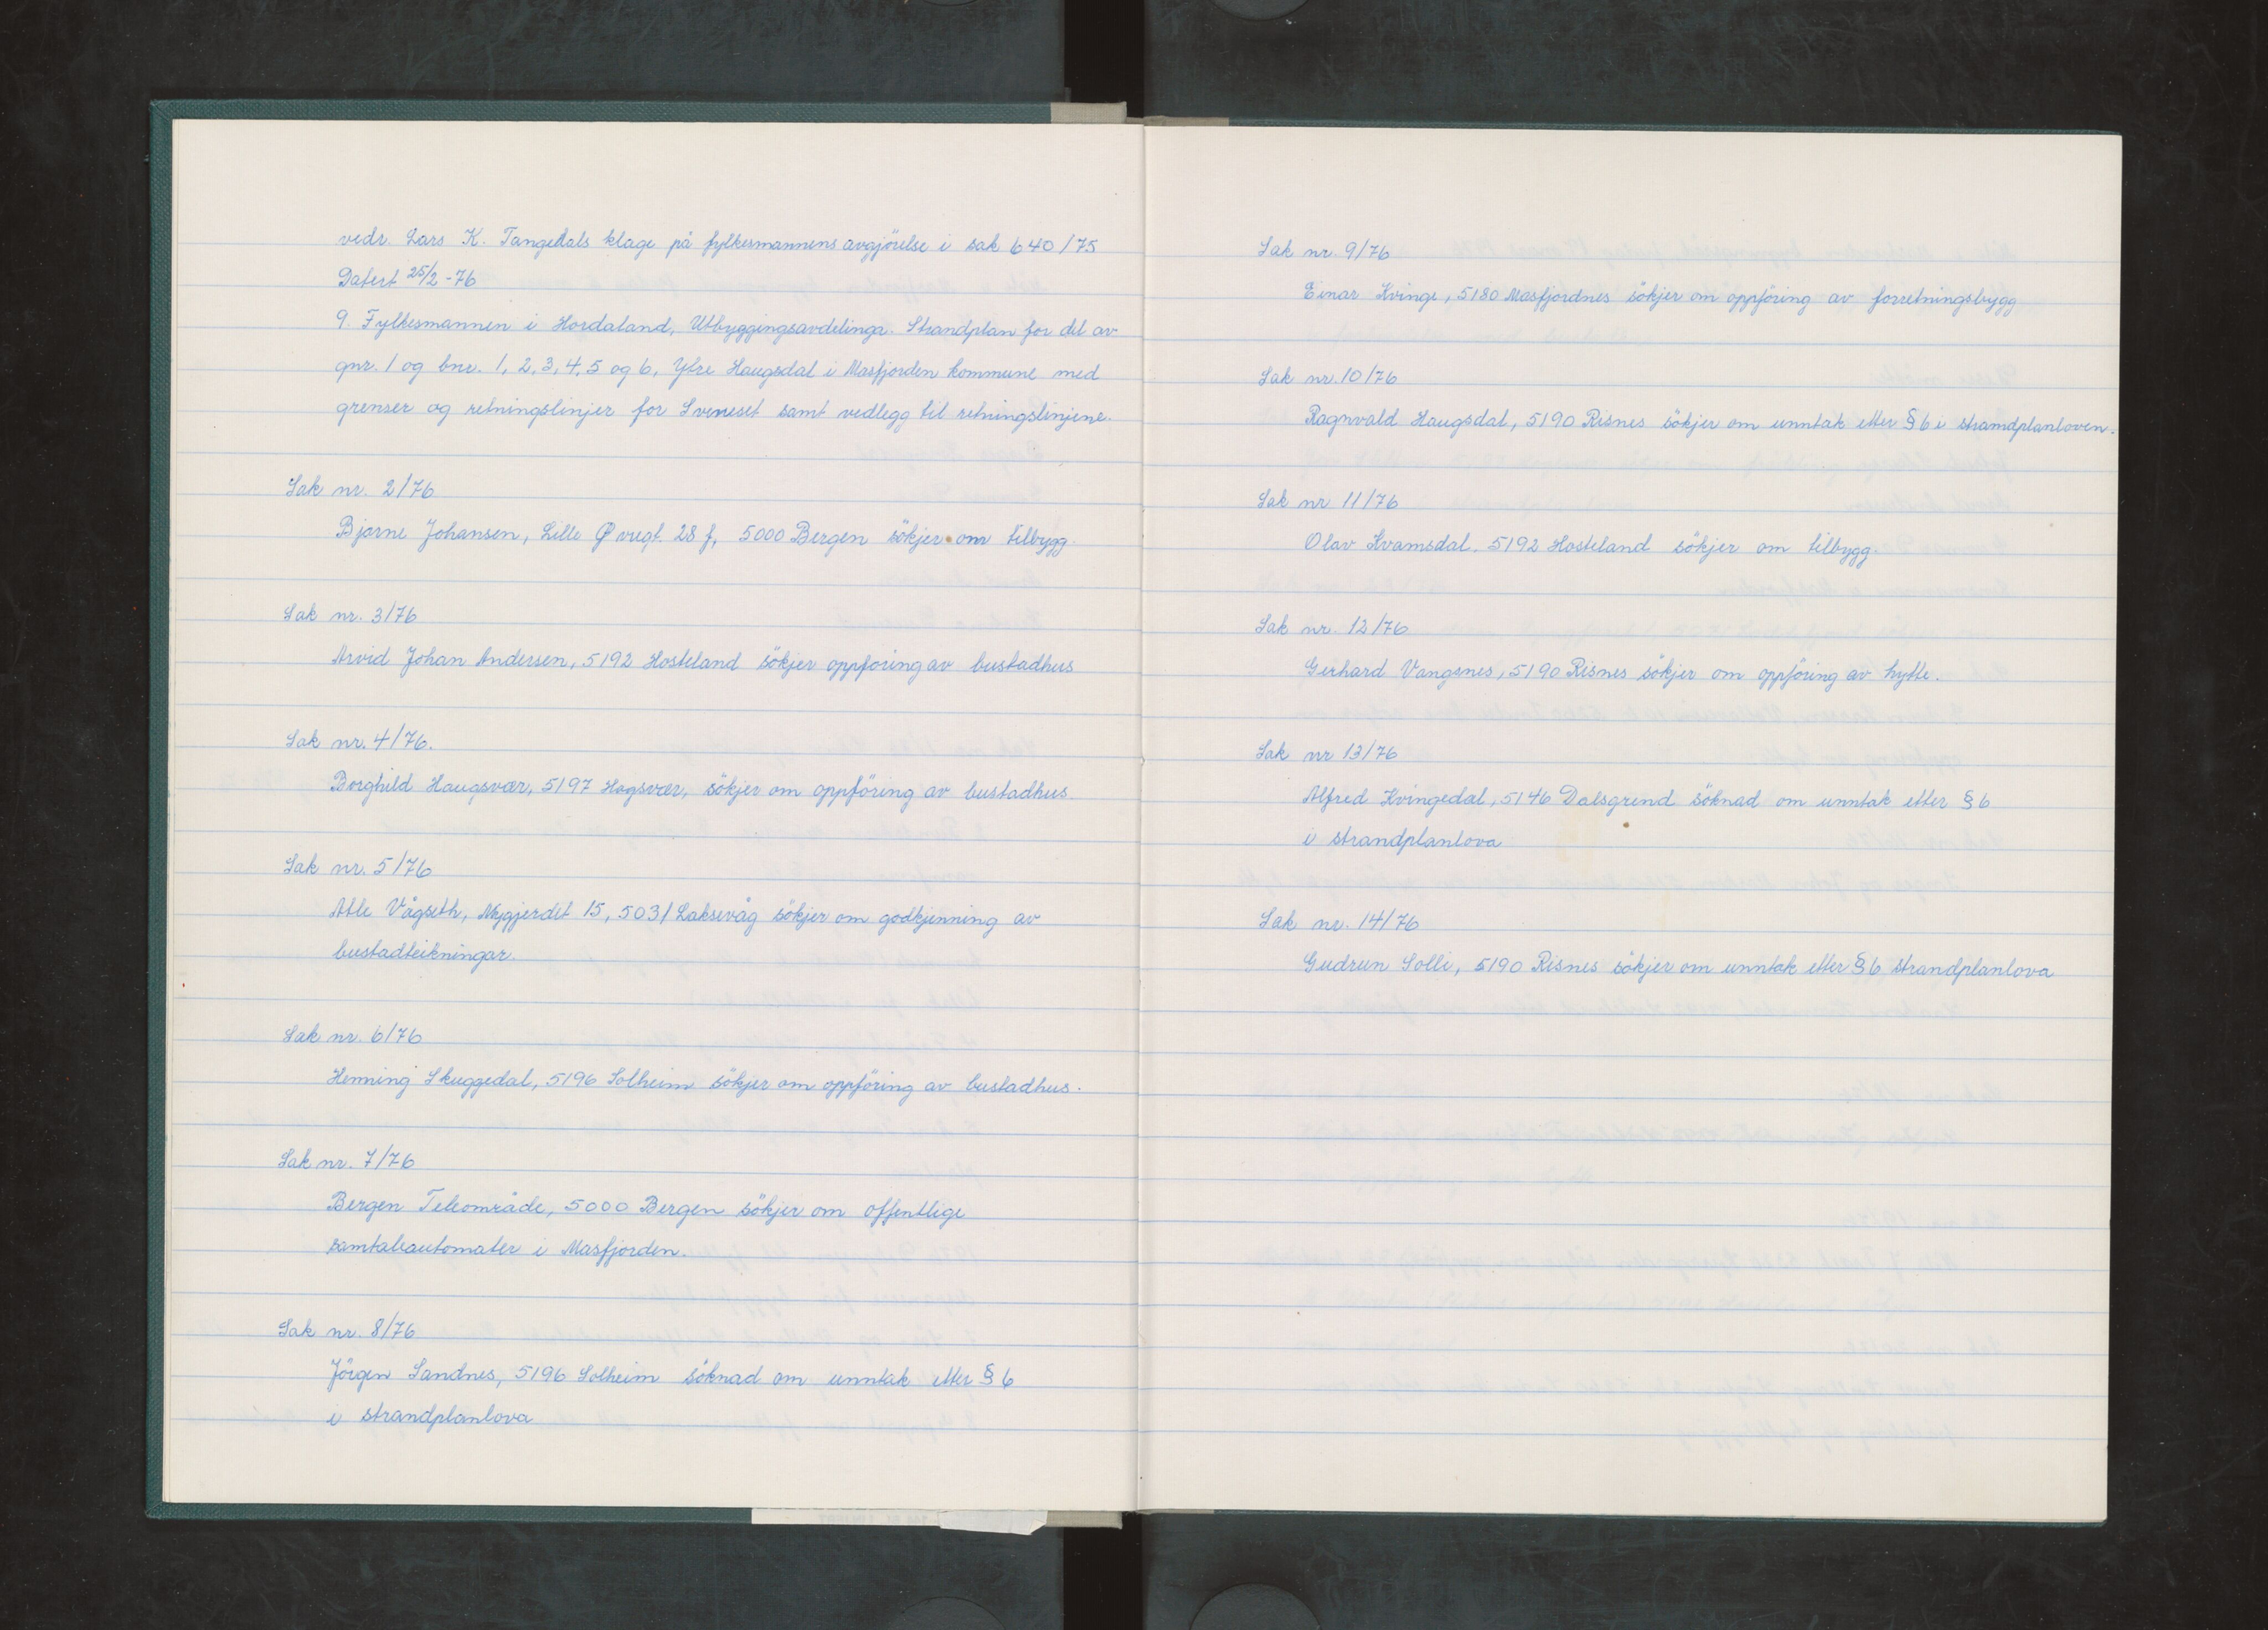 vedr. Lars K. Tangedals klage på fylkesmannens avgjörelse i sak 640/75
Datert 25/2-76
9. Fylkesmannen i Hordaland, Utbyggingsavdelinga. Strandplan for del av
gnr. 1 og bnr. 1, 2, 3, 4, 5 og 6, Ytre Haugsdal i Masfjorden kommune med
grenser og retningslinjer for Sveneset samt vedlegg til retningslinjene.
Sak nr. 2/76
Bjarne Johansen, Lille Øvregt. 28 f, 5000 Bergen sökjer om tilbygg.
Sak nr. 3/76
Arvid Johan Andersen, 5192 Hosteland sökjer oppföring av bustadhus
Sak nr. 4/76.
Borghild Haugsvær, 5197 Hogsvær, sökjer om oppföring av bustadhus.
Sak nr. 5/76
Atle Vågseth, Nygjerdet 15, 5031 Laksevåg sökjer om godkjenning av
bustadteikningar.
Sak nr. 6/76
Henning Skuggedal, 5196 Solheim sökjer om oppföring av bustadhus.
Sak nr. 7/76
Bergen Teleområde, 5000 Bergen sökjer om offentlige
samtaleautomater i Masfjorden.
Sak nr. 8/76
Jörgen Sandnes, 5196 Solheim söknad om unntak etter § 6
i strandplanlova
Sak nr. 9/76
Einar Kvinge, 5180 Masfjordnes sökjer om oppföring av forretningsbygg
Sak nr. 10/76
Ragnvald Haugsdal, 5190 Risnes sökjer om unntak etter § 6 i stramdplanloven.
Sak nr 11/76
Olav Kvamsdal. 5192 Hosteland sökjer om tilbygg.
Sak nr. 12/76
Gerhard Vangsnes, 5190 Risnes sökjer om oppföring av hytte.
Sak nr 13/76
Alfred Kvingedal, 5146 Dalsgrend söknad om unntak etter § 6
i strandplanlova
Sak nr. 14/76
Gudrun Solli, 5190 Risnes sökjer om unntak etter § 6 strandplanlova